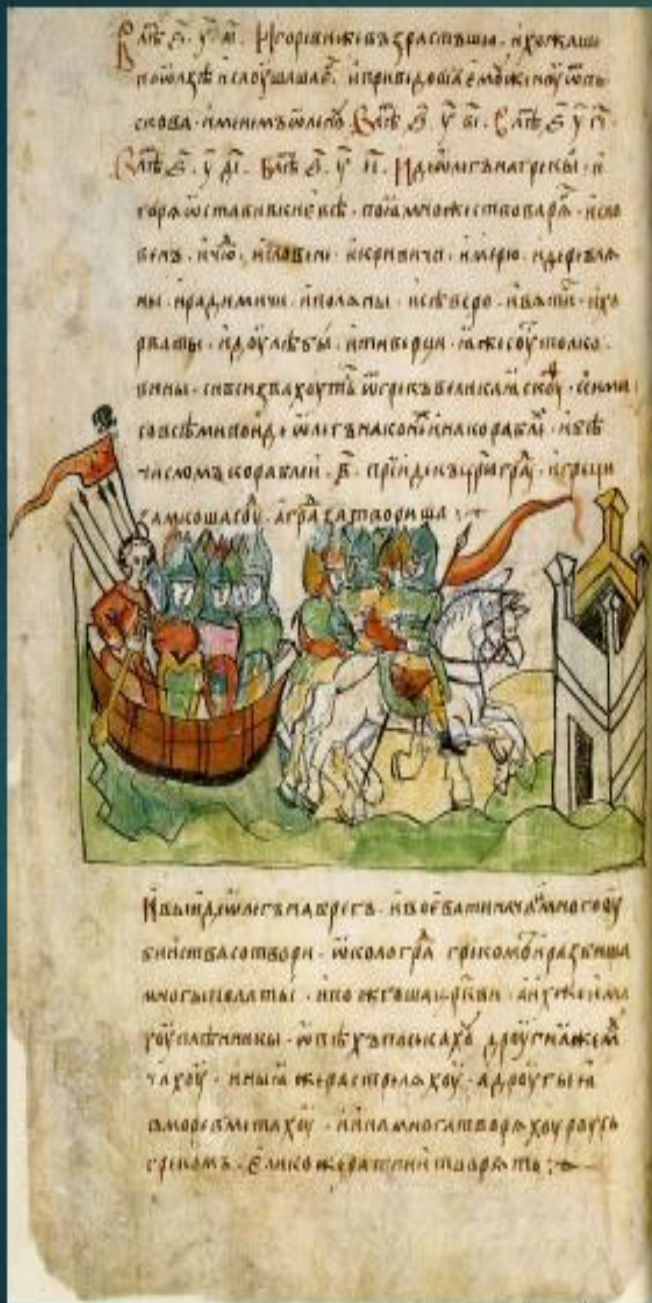 В лѣⷮ ҂ѕ҃. у҃ аі҃. Игореви же възрастъшю. и хожаше
по ѡлзѣ и слоушаше еⷢ. и приведоша емоу женоу ѿ пь
скова. именемъ ѡленоу В лѣⷮ ҂ѕ҃ у҃ ві҃. В лѣⷮ ҂ѕ҃ у҃ гі҃.
В лѣⷮ ҂ѕ҃. у҃ ді҃. В лѣⷮ ҂ѕ҃. у҃ еі҃. Иде ѡлегъ на греки. и
горѧ ѡставив киевѣ. поѧ множество варѧⷢ. и сло
венъ. и чюⷣ. и словени. и кривичи. и мерю. и деревлѧ
ны. и радимичи. и полѧны. и сѣверо. и вѧтичи. и хо
рваты. и доулѣбы. и тиверци. ꙗже соуⷮ толко
вины. си вси звахоутьⷭ ѿ грекъ великаꙗ скоуⷴ. с сими
со всѣми поиде ѡлегъ на конеⷯ и на кораблеⷯ. и бѣ
числомъ кораблеи. ҂в҃. прииде къ црⷭюграⷣ. и греци
замкоша соуⷣ. а граⷣ затвориша
И выиде ѡлегъ на брегъ. и воевати начаⷮ. и много оу
бииства сотвори. ѡколо граⷣ грекомъ. и разбиша
многы полаты. и пожгоша црⷪкви. а ихже има
хоу плѣнникы. ѡвѣхъ посѣкахоу дроугиꙗ же моу
чахоу. иныѧ же растрелѧхоу. а дроугыꙗ
в море вметахоу. и ина многа творѧхоу роусь
грекомъ. елико же ратнии творѧть